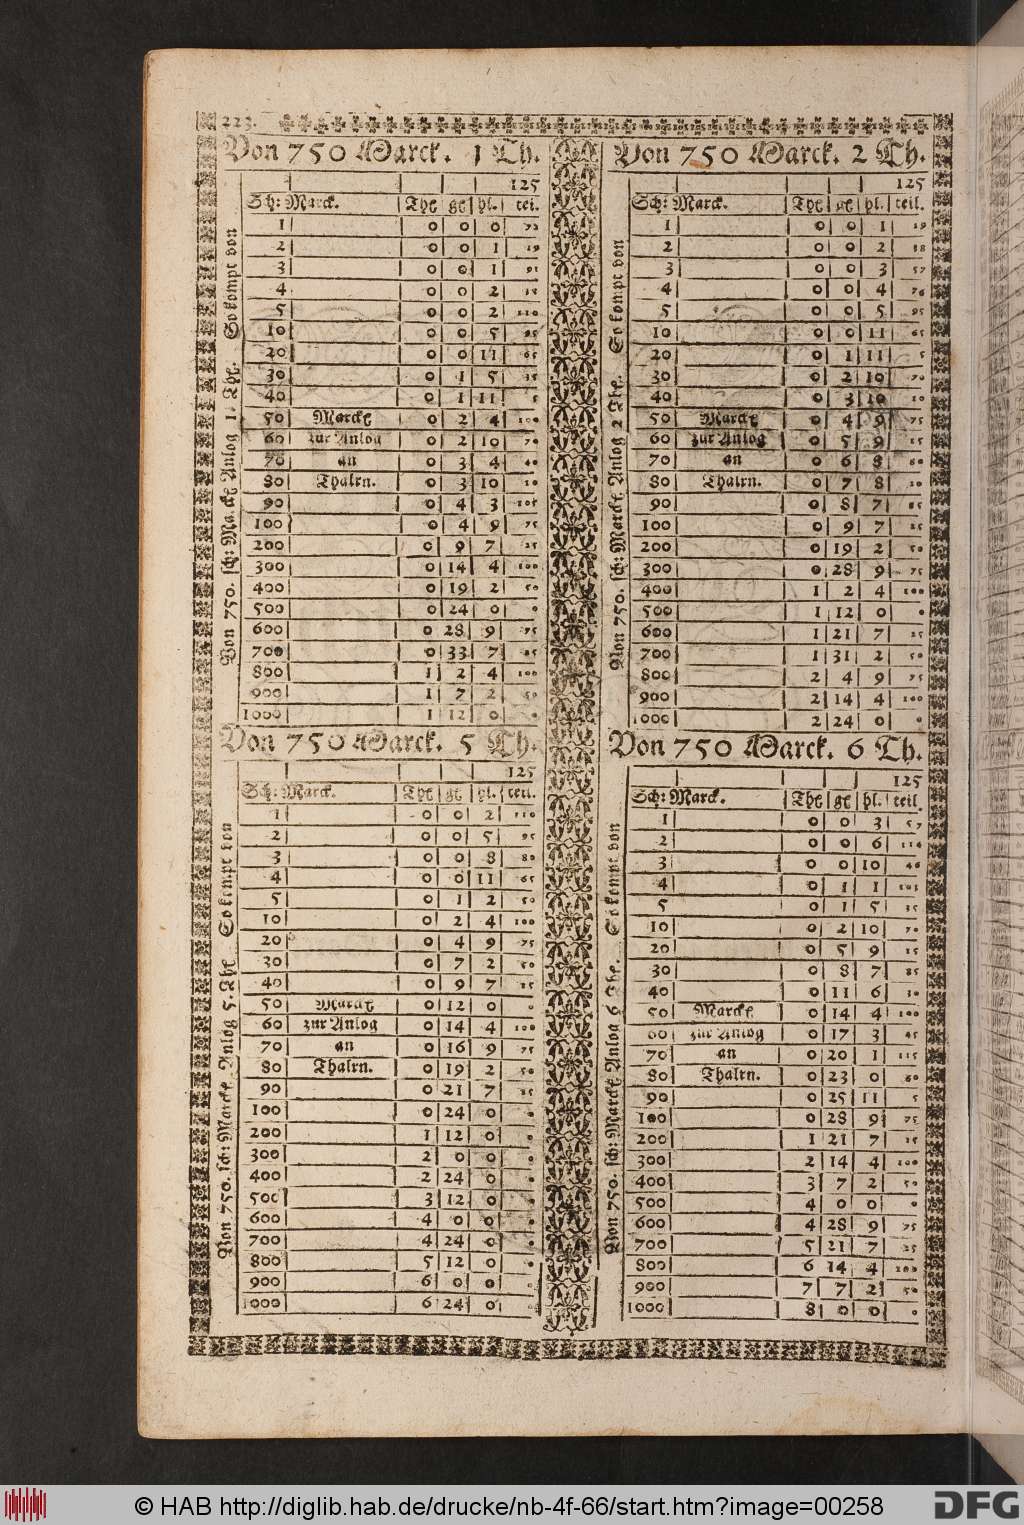 223.
Von 750 Marck. 1 Th.
125
Sch: Marck. Thl gl hl. tei.
1 0 0 0 72
2 0 0 1 19
3 0 0 1 91
4 0 0 2 38
5 0 0 2 110
10 0 0 5 95
20 0 0 11 65
30 0 1 5 35
40 0 1 11 5
50 Marckl 0 2 4 100
60 zur Anlog 0 2 10 70
70 an 0 3 4 40
80 Thalrn. 0 3 10 10
90 0 4 3 105
100 0 4 9 75
200 0 9 7 25
300 0 14 4 100
400 0 19 2 50
500 0 24 0 0
600 0 28 9 75
700 0 33 7 25
800 1 2 4 100
900 1 7 2 50
1000 1 12 0 0
Von 750. sch: Marckl Anlog 1. Thl. So kompt von
Von 750 Marck. 2 Th.
125
Sch: Marck. Thl gl hl. teil.
1 0 0 1 19
2 0 0 2 38
3 0 0 3 57
4 0 0 4 76
5 0 0 5 95
10 0 0 11 65
20 0 1 11 5
30 0 2 10 70
40 0 3 10 10
50 Marckl 0 4 9 75
60 zur Anlog 0 5 9 15
70 an 0 6 8 80
80 Thalrn. 0 7 8 20
90 0 8 7 85
100 0 9 7 25
200 0 19 2 50
300 0 28 9 75
400 1 2 4 100
500 1 12 0 0
600 1 21 7 25
700 1 31 2 50
800 2 4 9 75
900 2 14 4 100
1000 2 24 0 0
Von 750. sch: Marckl Anlog 2 Thl. So kompt von
Von 750 Marck. 5 Th.
125
Sch: Marck. Thl gl hl. teil.
1 0 0 2 110
2 0 0 5 95
3 0 0 8 80
4 0 0 11 65
5 0 1 2 50
10 0 2 4 100
20 0 4 9 75
30 0 7 2 50
40 0 9 7 25
50 Marckl 0 12 0 0
60 zur Anlog 0 14 4 100
70 an 0 16 9 75
80 Thalrn. 0 19 2 50
90 0 21 7 25
100 0 24 0 0
200 1 12 0 0
300 2 0 0 0
400 2 24 0 0
500 3 12 0 0
600 4 0 0 0
700 4 24 0 0
800 5 12 0 0
900 6 0 0 0
1000 6 24 0 0
Von 750. sch: Marckl Anlog 5. Thl So kompt von
Von 750 Marck. 6 Th.
125
Sch: Marck. Thl gl hl. teil
1 0 0 3 57
2 0 0 6 114
3 0 0 10 46
4 0 1 1 103
5 0 1 5 35
10 0 2 10 70
20 0 5 9 15
30 0 8 7 85
40 0 11 6 30
50 Marckl 0 14 4 100
60 zur Anlog 0 17 3 45
70 an 0 20 1 115
80 Thalrn. 0 23 0 60
90 0 25 11 5
100 0 28 9 75
200 1 21 7 25
300 2 14 4 100
400 3 7 2 50
500 4 0 0 0
600 4 28 9 75
700 5 21 7 25
800 6 14 4 100
900 7 7 2 50
1000 8 0 0 0
Von 750. sch: Marckl Anlog 6 Thl. So kompt von
© HAB http://diglib.hab.de/drucke/nb-4f-66/start.htm?image=00258
DFG